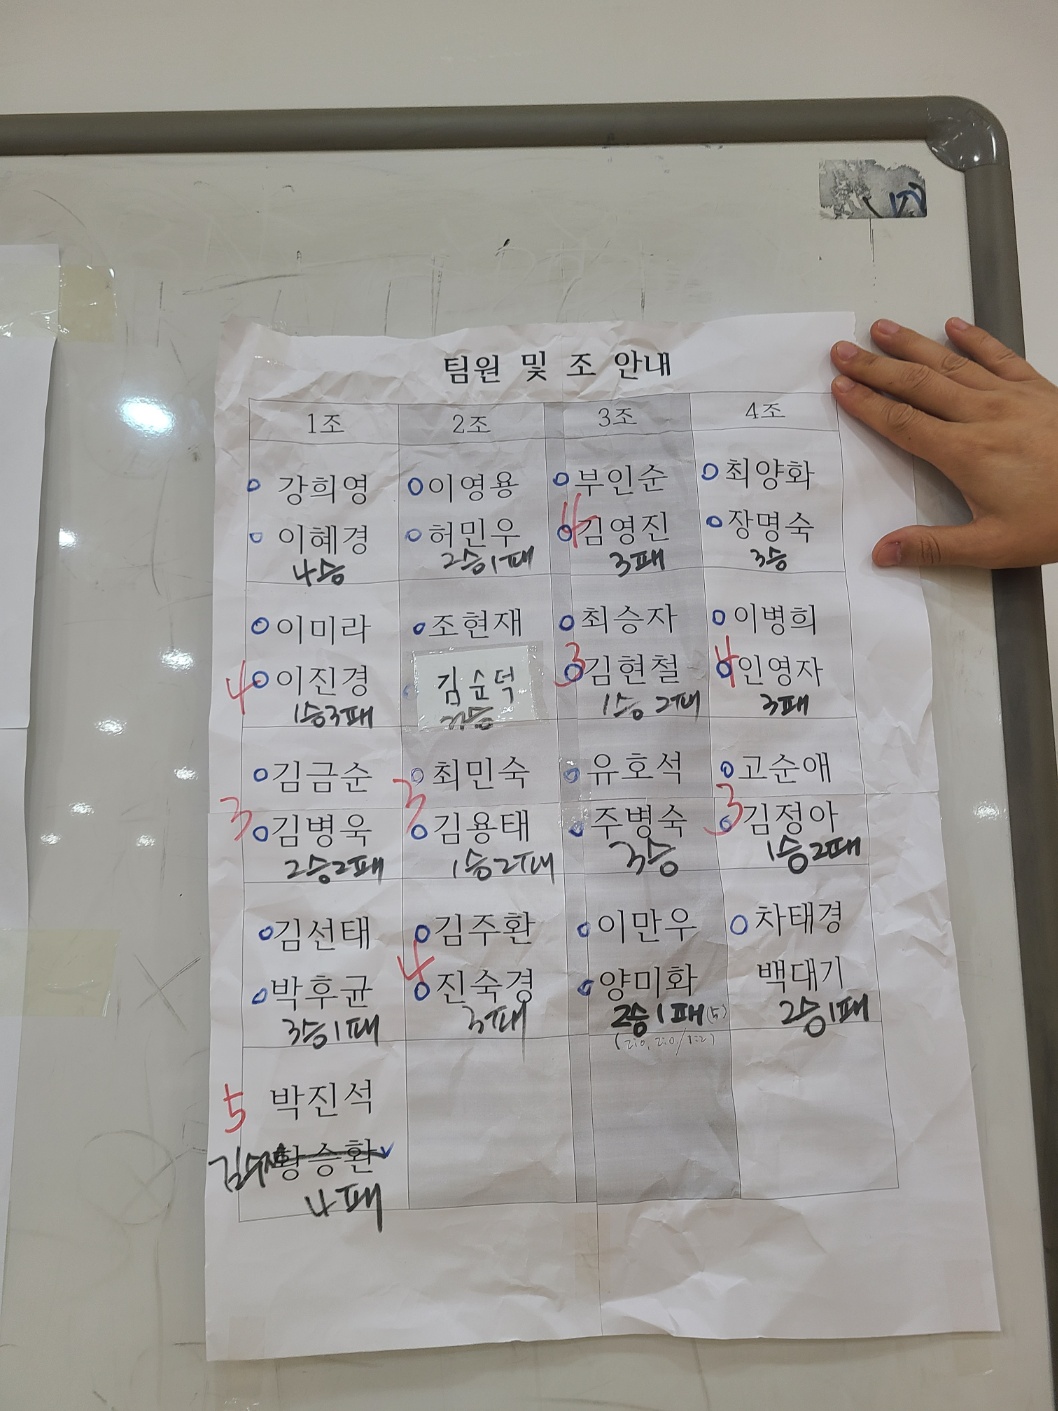 팀원 및 조 안내
1조 2조 3조 4조
강희영 이영용 부인순 최양화
이혜경 허민우 4 김영진 장명숙
4승 2승1패 3패 3승
이미라 조현재 최승자 이병희
4 이진경 김순덕 3 김현철 4 인영자
1승3패 1승 2패 3패
김금순 최민숙 유호석 고순애
3 김병욱 3 김용태 주병숙 3 김정아
2승2패 1승2패 3승 1승2패
김선태 김주환 이만우 차태경
박후균 4 진숙경 양미화 백대기
3승1패 3패 2승1패(5) 2승1패
(2:0, 2:0/1:2)
5 박진석
황승환
4패